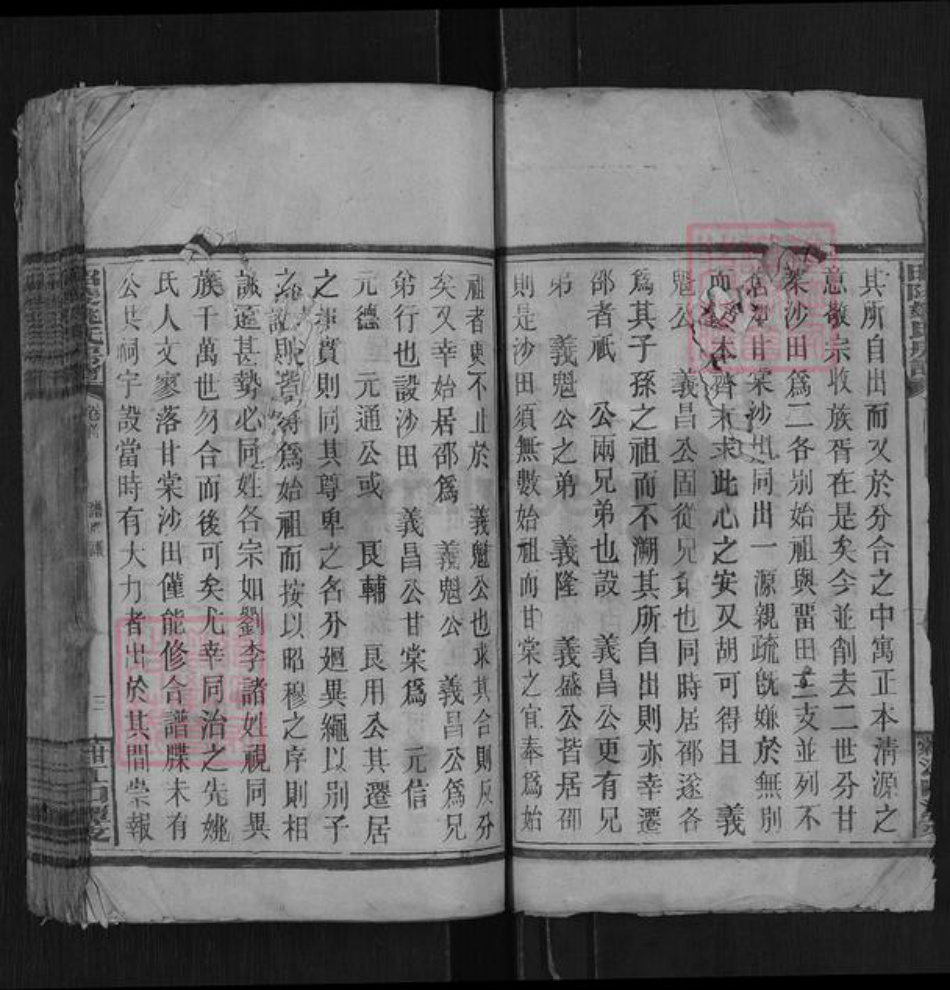 其所自出而又於分合之中寓正本清源之
意敬宗收族胥在是矣今並削去二世分甘
棠沙田爲二各别始祖與畱田三支並列不
甘棠沙田同出一源親疏旣嫌於無別
而 本齊末求此心之安又胡可得且 義
魁公 義昌公固從兄弟也同時居邵遂各
爲其子孫之祖而不溯其所自出則亦幸遷
邵者祇 公兩兄弟也設 義昌公更有兄
弟 義魁公之弟 義隆 義盛公皆居邵
則是沙田須無數始祖而甘棠之宜奉爲始
祖者更不止於 義魁公也求其合則反分
矣又幸始居邵爲 義魁公 義昌公爲兄
弟行也設沙田 義昌公甘棠爲 元信
元德 元通公或 艮輔 艮用公其遷居
之 貫則同其尊卑之名分廻異繩以别子
之説則皆 爲始祖而按以昭穆之序則相
誠遼甚勢必同姓各宗如劉李諸姓視同異
族千萬世勿合而後可矣尤幸同治之先姚
氏人文寥落甘棠沙田僅能修合譜牒未有
公共祠宇設當時有大力者出於其間崇報